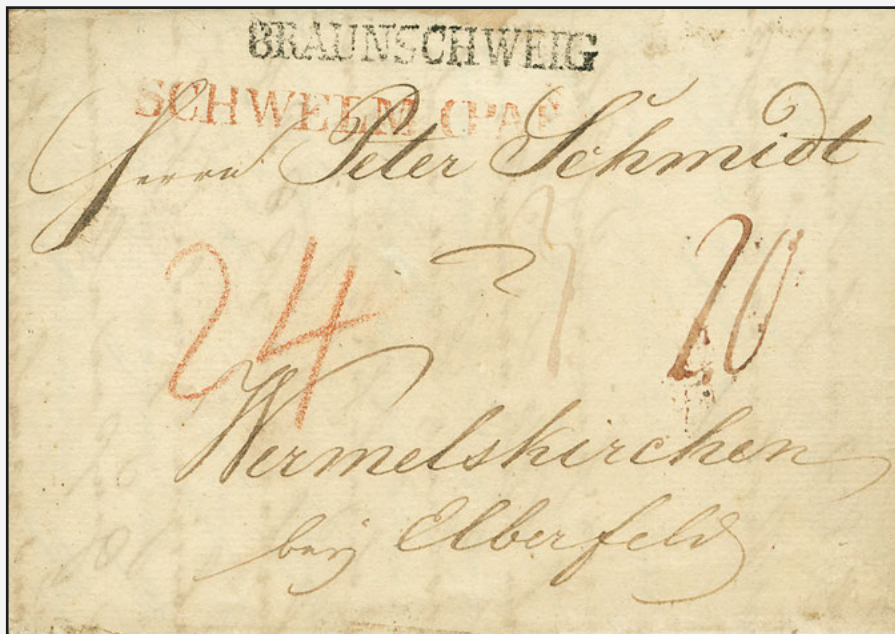 BRAUNSCHWEIG
SCHWELM
Herrn Peter Schmidt
24
20
Wermelskirchen
bey Elberfeld